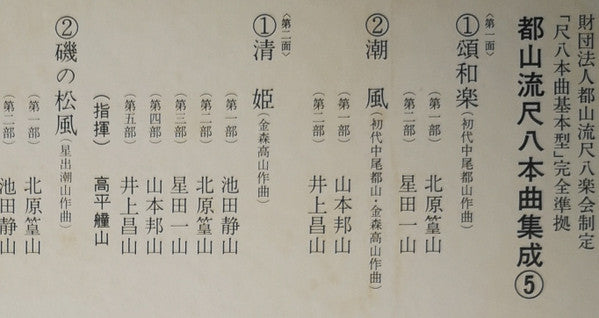 財団法人都山流尺八楽会制定
「尺八本曲基本型」完全準拠
都山流尺八本曲集成⑤
〈第一面〉
①頌和楽(初代中尾都山作曲)
(第一部) 北原篁山
(第二部) 星田一山
②潮風(初代中尾都山・金森高山作曲)
(第一部) 山本邦山
(第二部) 井上昌山
〈第二面〉
①清姫(金森高山作曲)
(第一部) 池田静山
(第二部) 北原篁山
(第三部) 星田一山
(第四部) 山本邦山
(第五部) 井上昌山
(指揮) 高平艟山
②磯の松風(星出潮山作曲)
(第一部) 北原篁山
(第二部) 池田静山